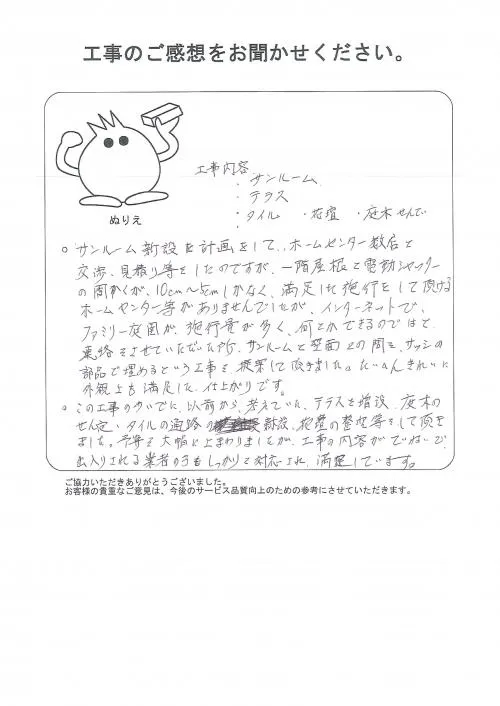 工事のご感想をお聞かせください。
ぬりえ
工事内容
・サンルーム
・テラス
・タイル ・花壇 ・庭木せんてい
○ サンルーム新設を計画をして、ホームセンター数店と
交渉、見積り等をしたのですが、一階屋根と電動シャッター
の間かくが、10cm~5cmしかなく、満足した施行をして頂ける
ホームセンター等がありませんでしたが、インターネットで、
ファミリー庭園が、施行量が多く、何とかできるのではと、
連絡をさせていただいた所、サンルームと壁面との間を、サッシの
部品で埋めるという工事を提案して頂きました。たいへんきれいに
外観上も満足した仕上がりです。
○ この工事のついでに、以前から、考えていた、テラスを増設、庭木の
せん定・タイルの通路の新設、花壇の整地等をして頂き
ました。予算を大幅に上まわりましたが、工事の内容がていねいで、
出入りされる業者の方もしっかりと対応され、満足しています。
ご協力いただきありがとうございました。
お客様の貴重なご意見は、今後のサービス品質向上のための参考にさせていただきます。